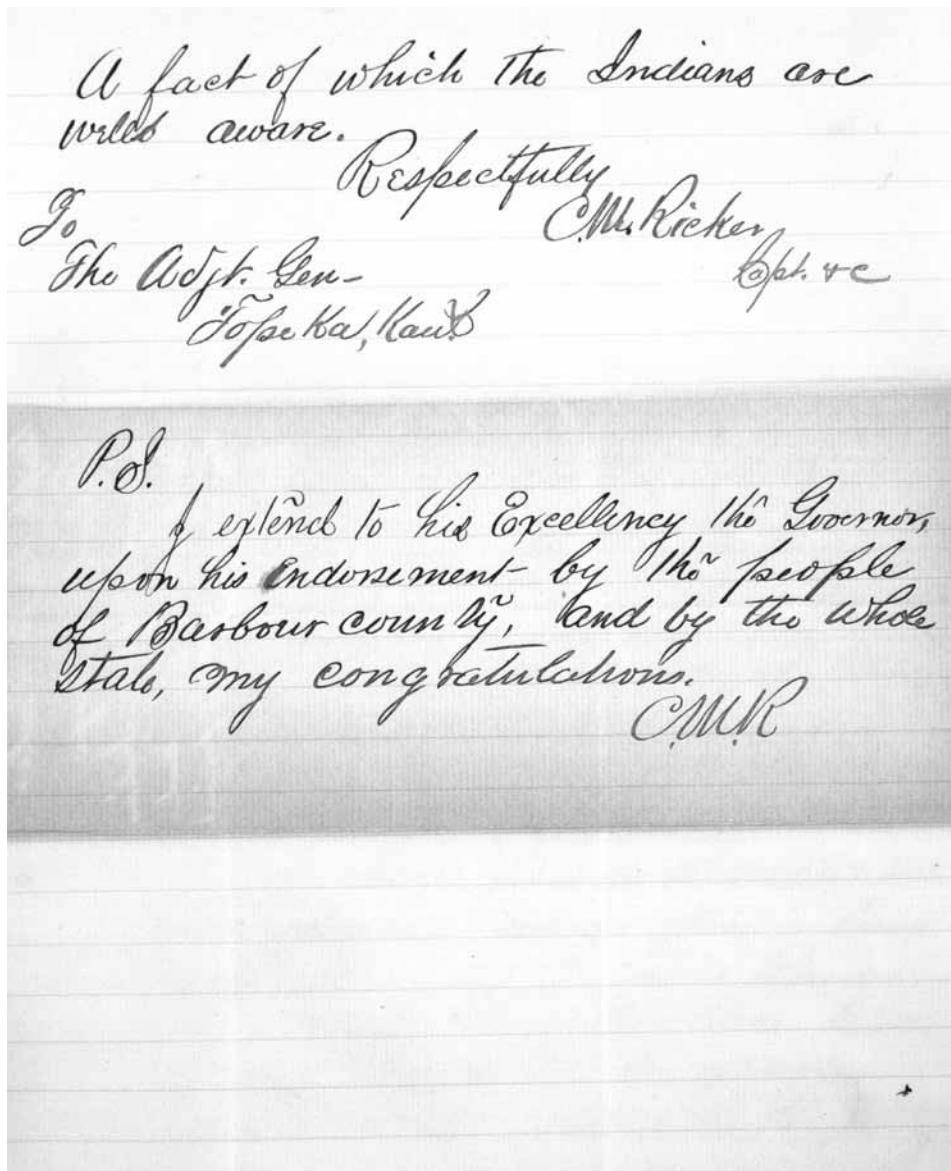 A fact of which the Indians are
well aware.
Respectfully
C.M. Ricker
Capt. &c
To
The Adjt. Gen-
Topeka, Kans
P.S.
I extend to his Excellency the Governor,
upon his endorsement by the people
of Barbour county, and by the whole
state, my congratulations.
C.M.R